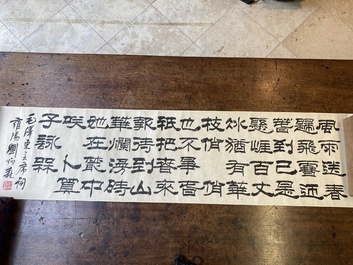 風雨送春
歸飛雪迎
春到已是
懸崖百丈
冰猶有華
枝俏俏
也不爭春
祇把春來
報待到山
華爛漫時
她在叢中
咲卜算
子詠槑
毛澤東主席詞
劉炳森